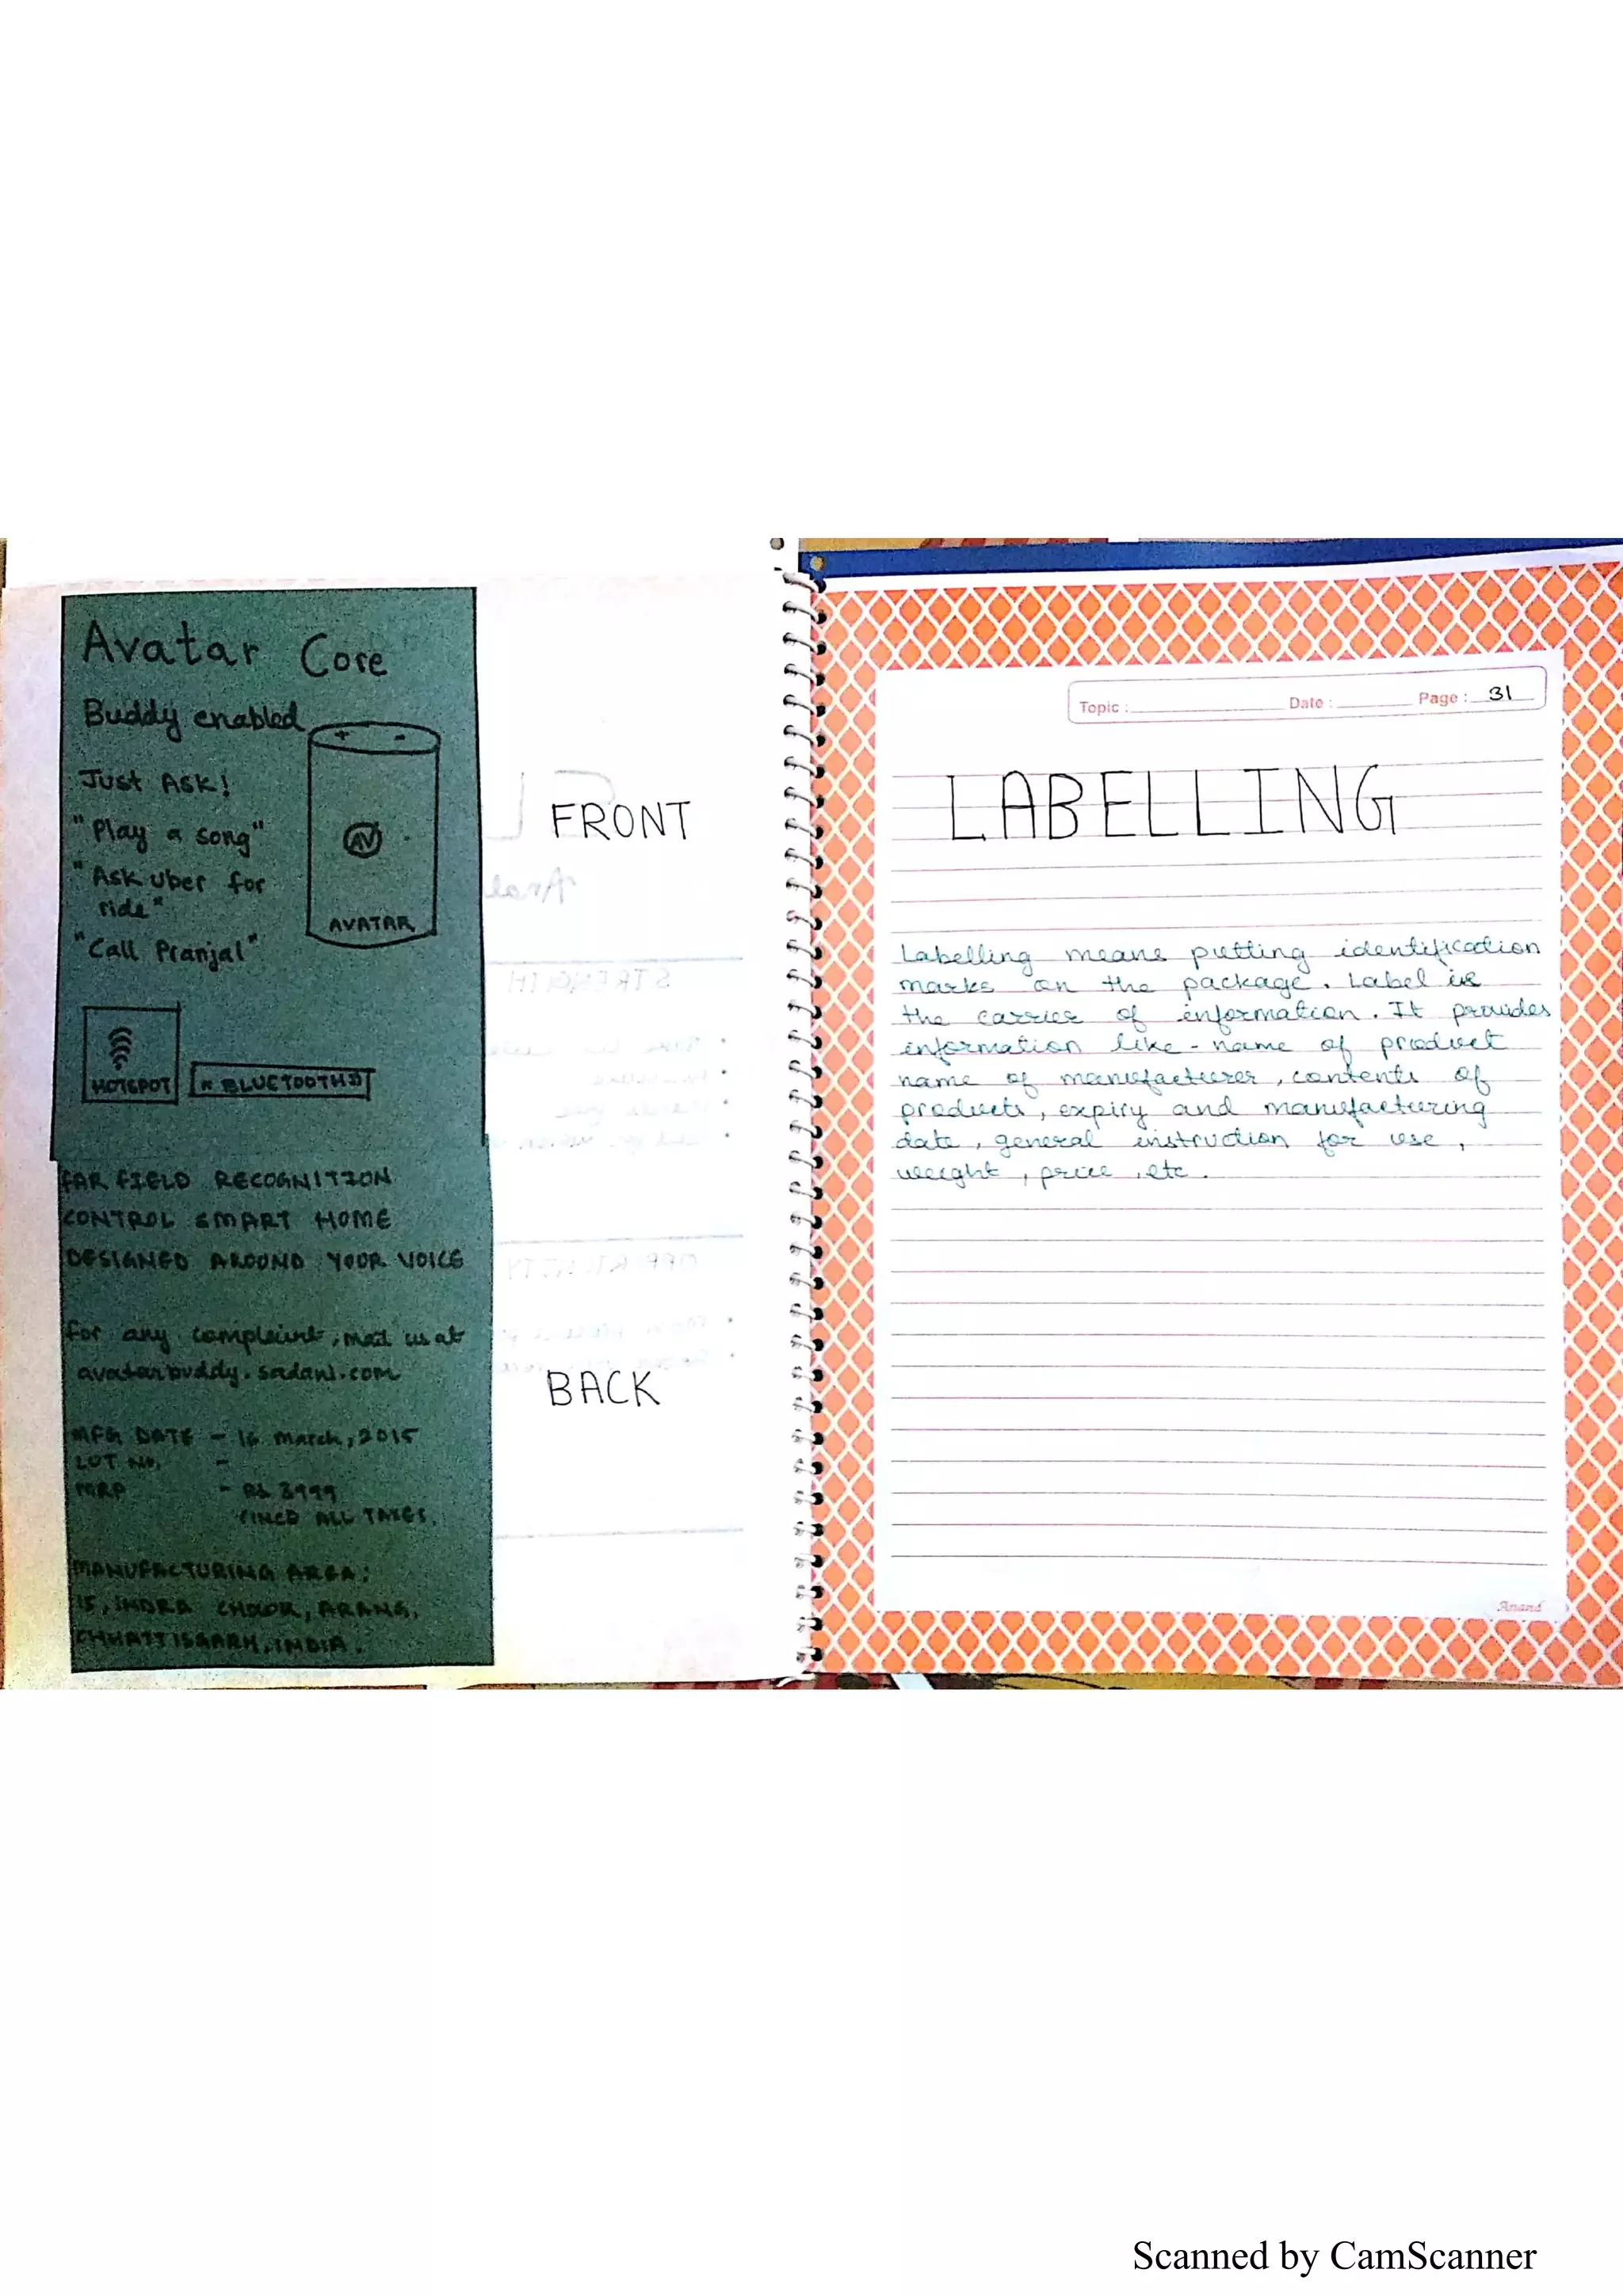 Avatar Core
Buddy enabled
+ -
Just Ask!
"Play a song"
"Ask Uber for
ride"
"Call Pranjal"
AV
AVATAR
HOTSPOT
BLUETOOTH
FRONT
FAR FIELD RECOGNITION
CONTROL SMART HOME
DESIGNED AROUND YOUR VOICE
For any complaint, mail us at
avatarbuddy.sadani.com
MFG DATE - 16 March, 2015
LOT NO. -
MRP - Rs 3999
ALL TAXES.
MANUFACTURING AREA:
15, INDRA CHOWK, ARANG,
CHHATTISGARH, INDIA.
BACK
Topic : Date : Page : 31
LABELLING
Labelling means putting identification
marks on the package. Label is
the carrier of information. It provides
information like - name of product
name of manufacturer, contents of
products, expiry and manufacturing
date, general instruction for use,
weight, price, etc.
Anand
Scanned by CamScanner